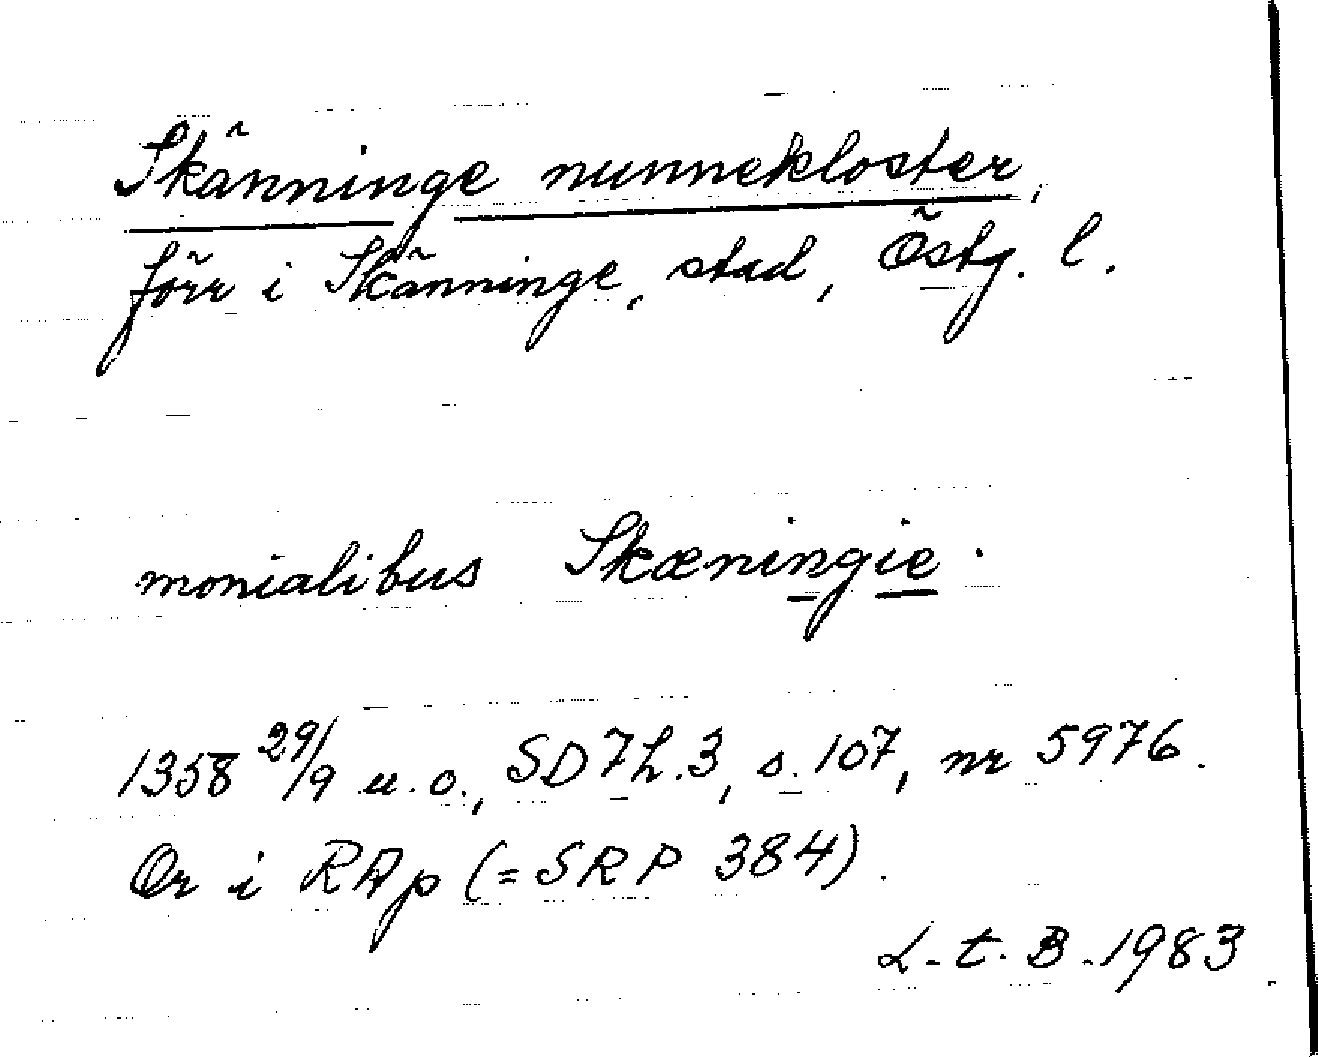 Skänninge nunnekloster,
förr i Skänninge, stad, Östg. l.
monialibus Skæningie.
1358 29/9 u.o., SD7h.3, s.107, nr 5976.
Or i RAp (=SRP 384).
L.t.B.1983